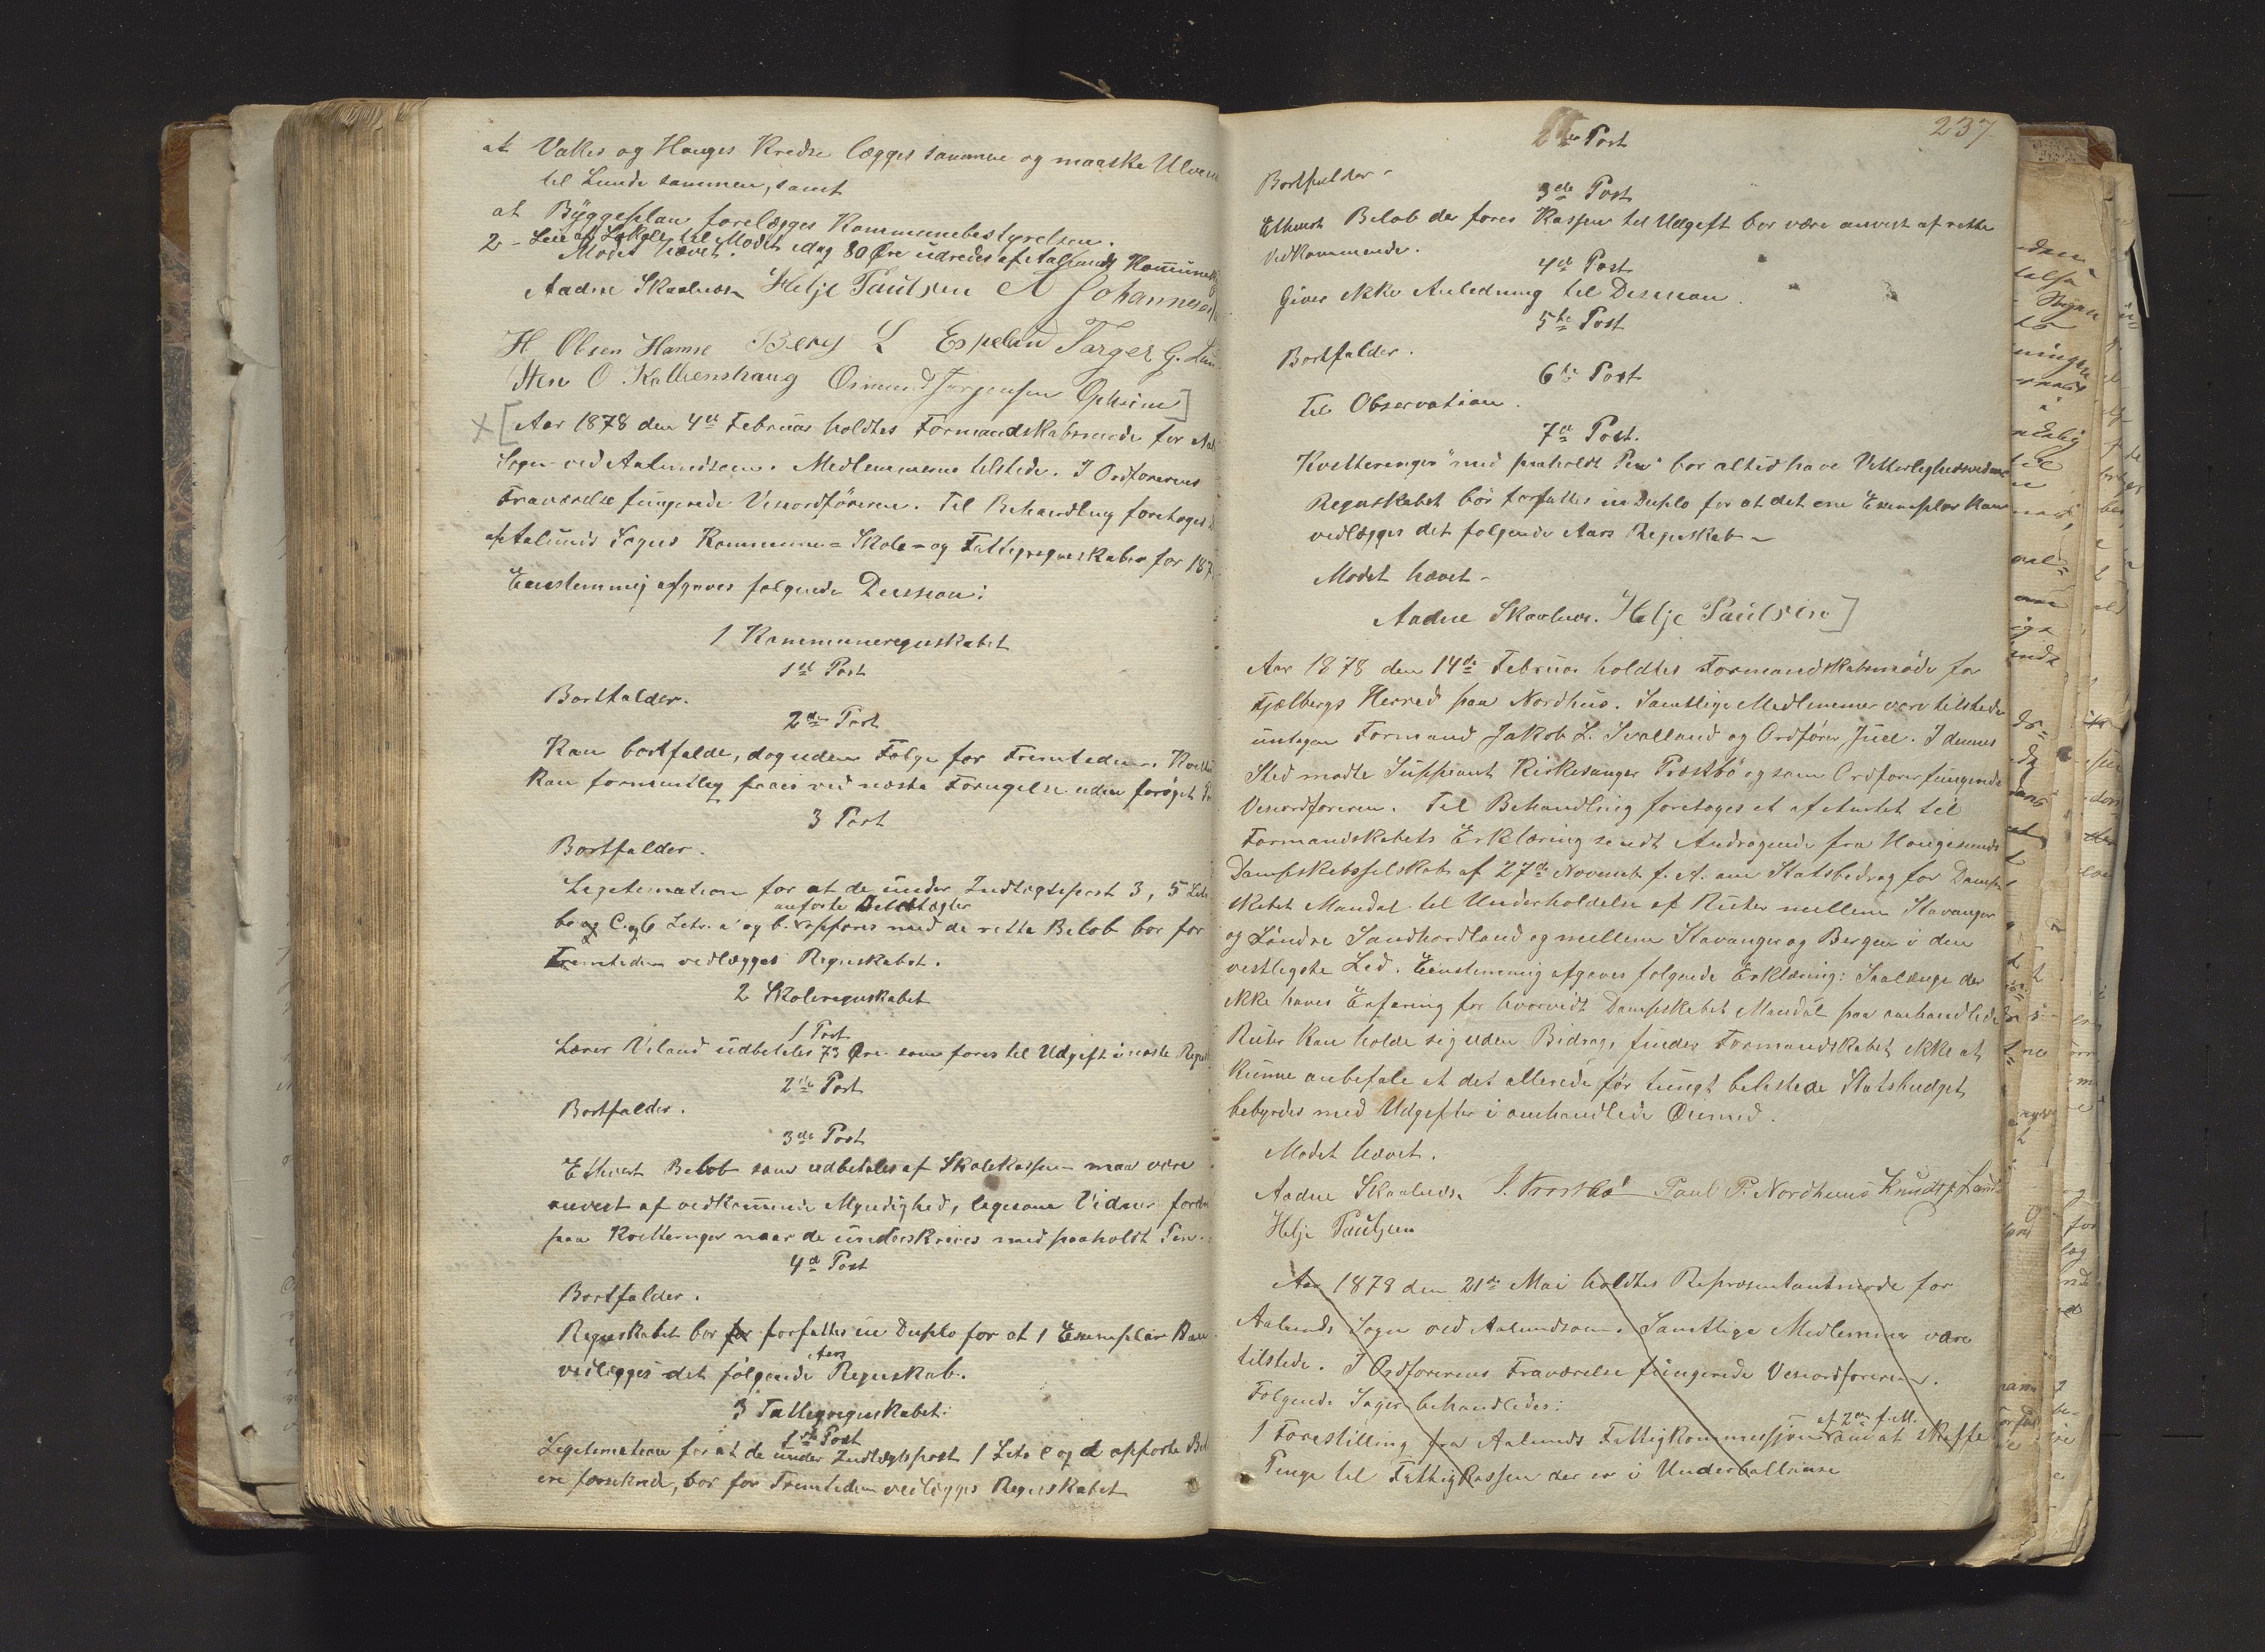 at Valles og Hauges Kredse lægges sammen og maaske
til Lunde sammen, samt
at Byggeplan forelægges Kommunebestyrelsen.
2 - Leie af Lokale til Mødet idag 80 Øre udredes af Aalunds
Mødet hævet.
Aadne Skaaluren Helje Paulsen A Johannesen
H Olsen Hamre Berg L Espeland Torger G.
Sten O Kalhenshaug Osmund Jørgensen Opheim]
× [Aar 1878 den 4de Februar holdtes Formandskabsmøde for
Sogn ved Aalundsøen. Medlemmerne tilstede. I Ordførerens
Fraværelse fungerede Viseordføreren. Til Behandling foretoges
af Aalunds Sogns Kommune- Skole- og Fattigregnskaber for
Eenstemmig afgaves følgende Decision:
1 Kommuneregnskabet
1ste Post
Bortfalder.
2den Post
Kan bortfalde, dog uden Følge for Fremtiden.
kan formentlig faaes ved næste Fornyelse uden forøget
3 Post
Bortfalder.
Legitimation for at de under Indtægtspost 3, 5
anførte
b og C. og 6 Litr. a og b. opføres med de rette Beløb bør for
Fremtiden vedlægges Regnskabet.
2 Skoleregnskabet
1 Post
Lærer Viland udbetales 73 Øre som føres til Udgift i næste
2den Post
Bortfalder.
3die Post
Ethvert Beløb som udbetales af Skolekassen maa være
anvist af vedkommende Myndighed, ligesom Vidner
paa Kvitteringer naar de underskrives med paaholdt Pen.
4de Post
Bortfalder.
Regnskabet bør for forfattes in Duplo for at 1 Exemplar kan
Aars
vedlægges det følgende Regnskab.
3 Fattigregnskabet:
1ste Post
Legitimation for at de under Indtægtspost 1 Litr c og d opførte
ere forsikrede, bør for Fremtiden vedlægges Regnskabet
237
Post
Bortfalder -
3die Post
Ethvert Beløb der føres Kassen til Udgift bør være anvist af rette
Vedkommende.
4de Post
Giver ikke Anledning til Decision.
5te Post
Bortfalder.
6te Post
Til Observation.
7de Post.
Kvitteringer "med paaholdt Pen" bør altid have
Regnskabet bør forfattes in Duplo for at det ene Exemplar kan
vedlægges det følgende Aars Regnskab -
Mødet hævet -
Aadne Skaaluren. Helje Paulsen]
Aar 1878 den 14de Februar holdtes Formandskabsmøde for
Fjælbergs Herred paa Nordhus. Samtlige Medlemmer vare tilstede
untagen Formand Jakob L. Svalland og Ordfører Juel. I dennes
Sted mødte Suppleant Kirkesanger Prøstbø og som Ordfører fungerede
Viseordføreren. Til Behandling foretoges et af Amtet til
Formandskabets Erklæring sendt Andragende fra Haugesunds
Dampskibsselskab af 27de Novemb. f. A. om Statsbidrag for Damp-
skibet Mandal til Underholdelse af Ruter mellem Stavanger
og Søndre Søndhordland og mellem Stavanger og Bergen i den
vestligste Led. Eenstemmig afgaves følgende Erklæring: Saalænge der
ikke haves Erfaring for hvorvidt Dampskibet Mandal paa omhandlede
Ruter kan holde sig uden Bidrag, finder Formandskabet ikke at
kunne anbefale at det allerede før tungt belastede Statsbudget
bebyrdes med Udgifter i omhandlede Øiemed.
Mødet hævet.
Aadne Skaaluren J. Prøstbø Paul P. Nordhuus Knudt J.
Helje Paulsen
Aar 1878 den 21de Mai holdtes Repræsentantmøde for
Aalunds Sogn ved Aalundsøen. Samtlige Medlemmer vare
tilstede. I Ordførerens Fraværelse fungerede Viseordføreren.
Følgende Sager behandledes:
af 2den f. M.
1 Forestilling fra Aalunds Fattigkommissjon om at skaffe
Penge til Fattigkassen der er i Underballance